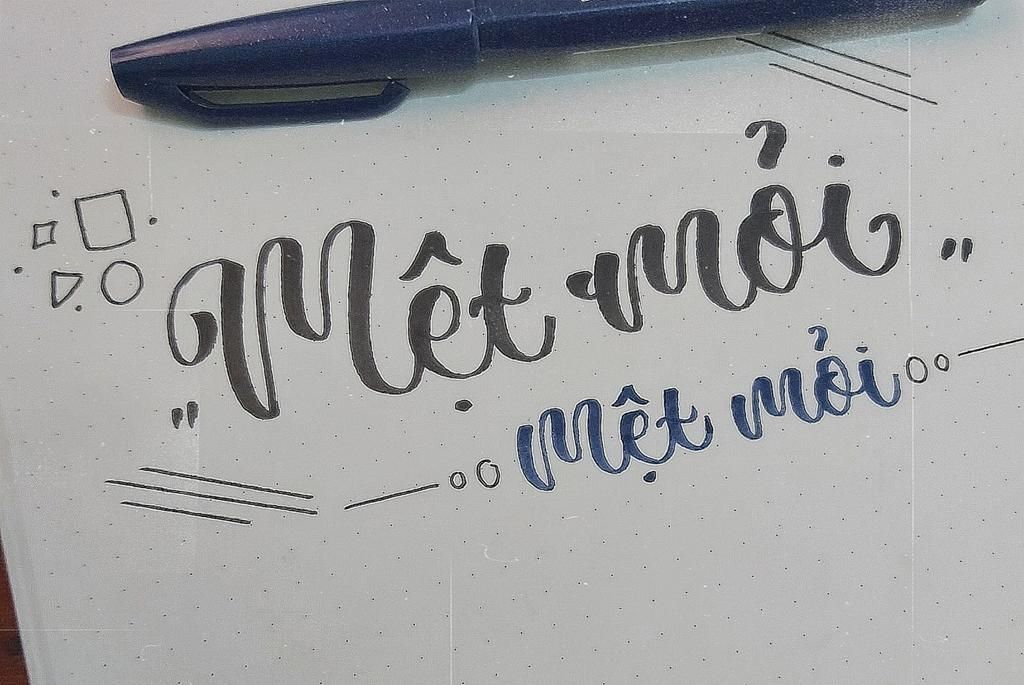 "Mệt mỏi"
Mệt mỏi